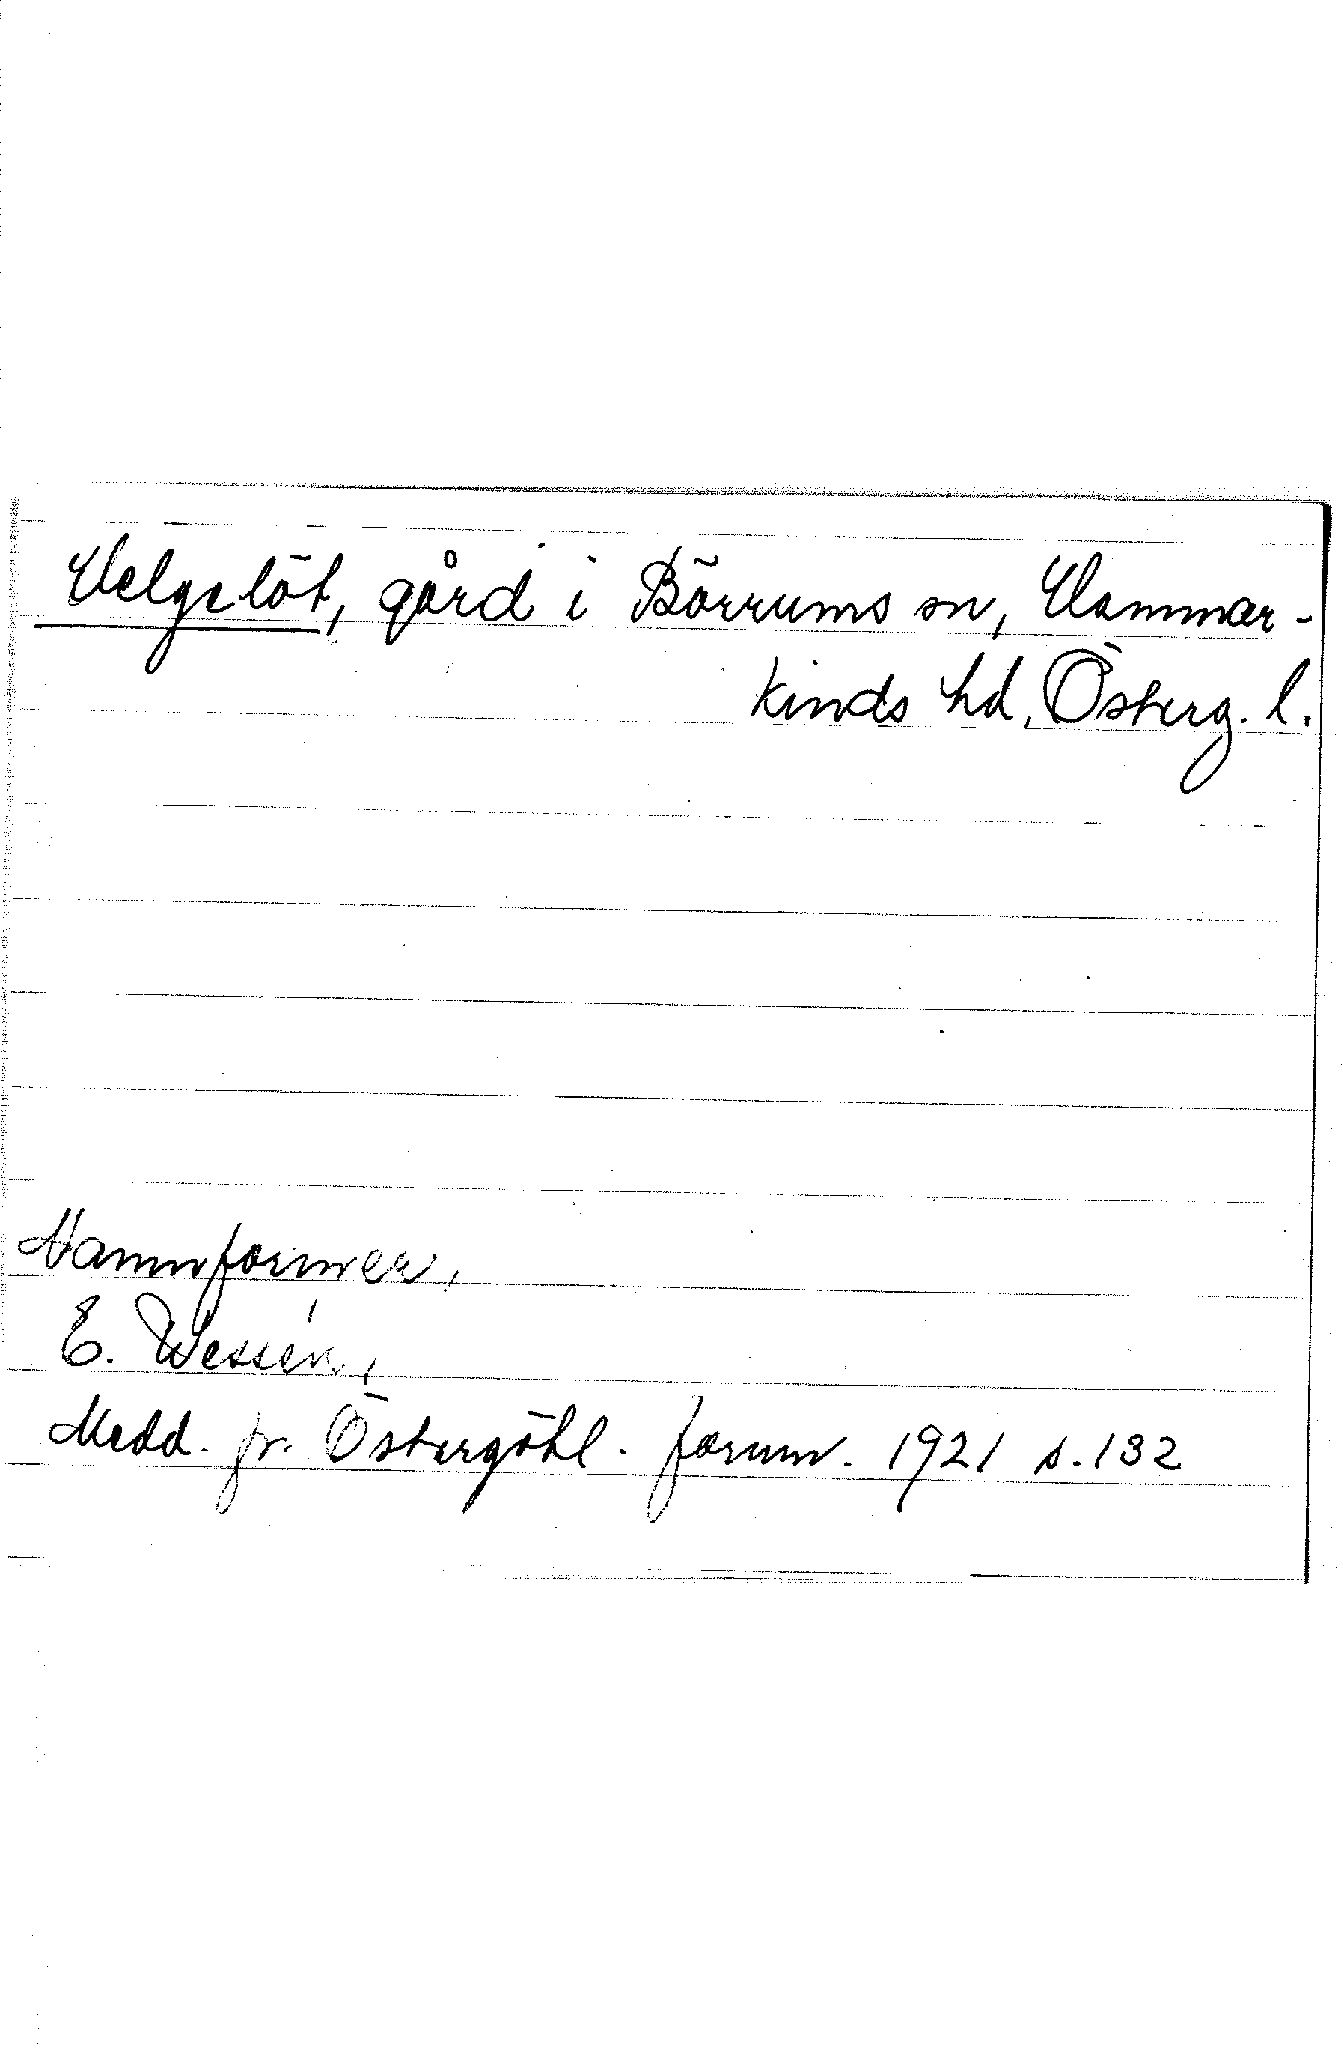 Helgelöt, gård i Börrums sn, Hammar-
kinds hd, Österg. l.
Namnformer,
E. Wessén,
Medd. fr. Östergötl. fornm. 1921 s. 132